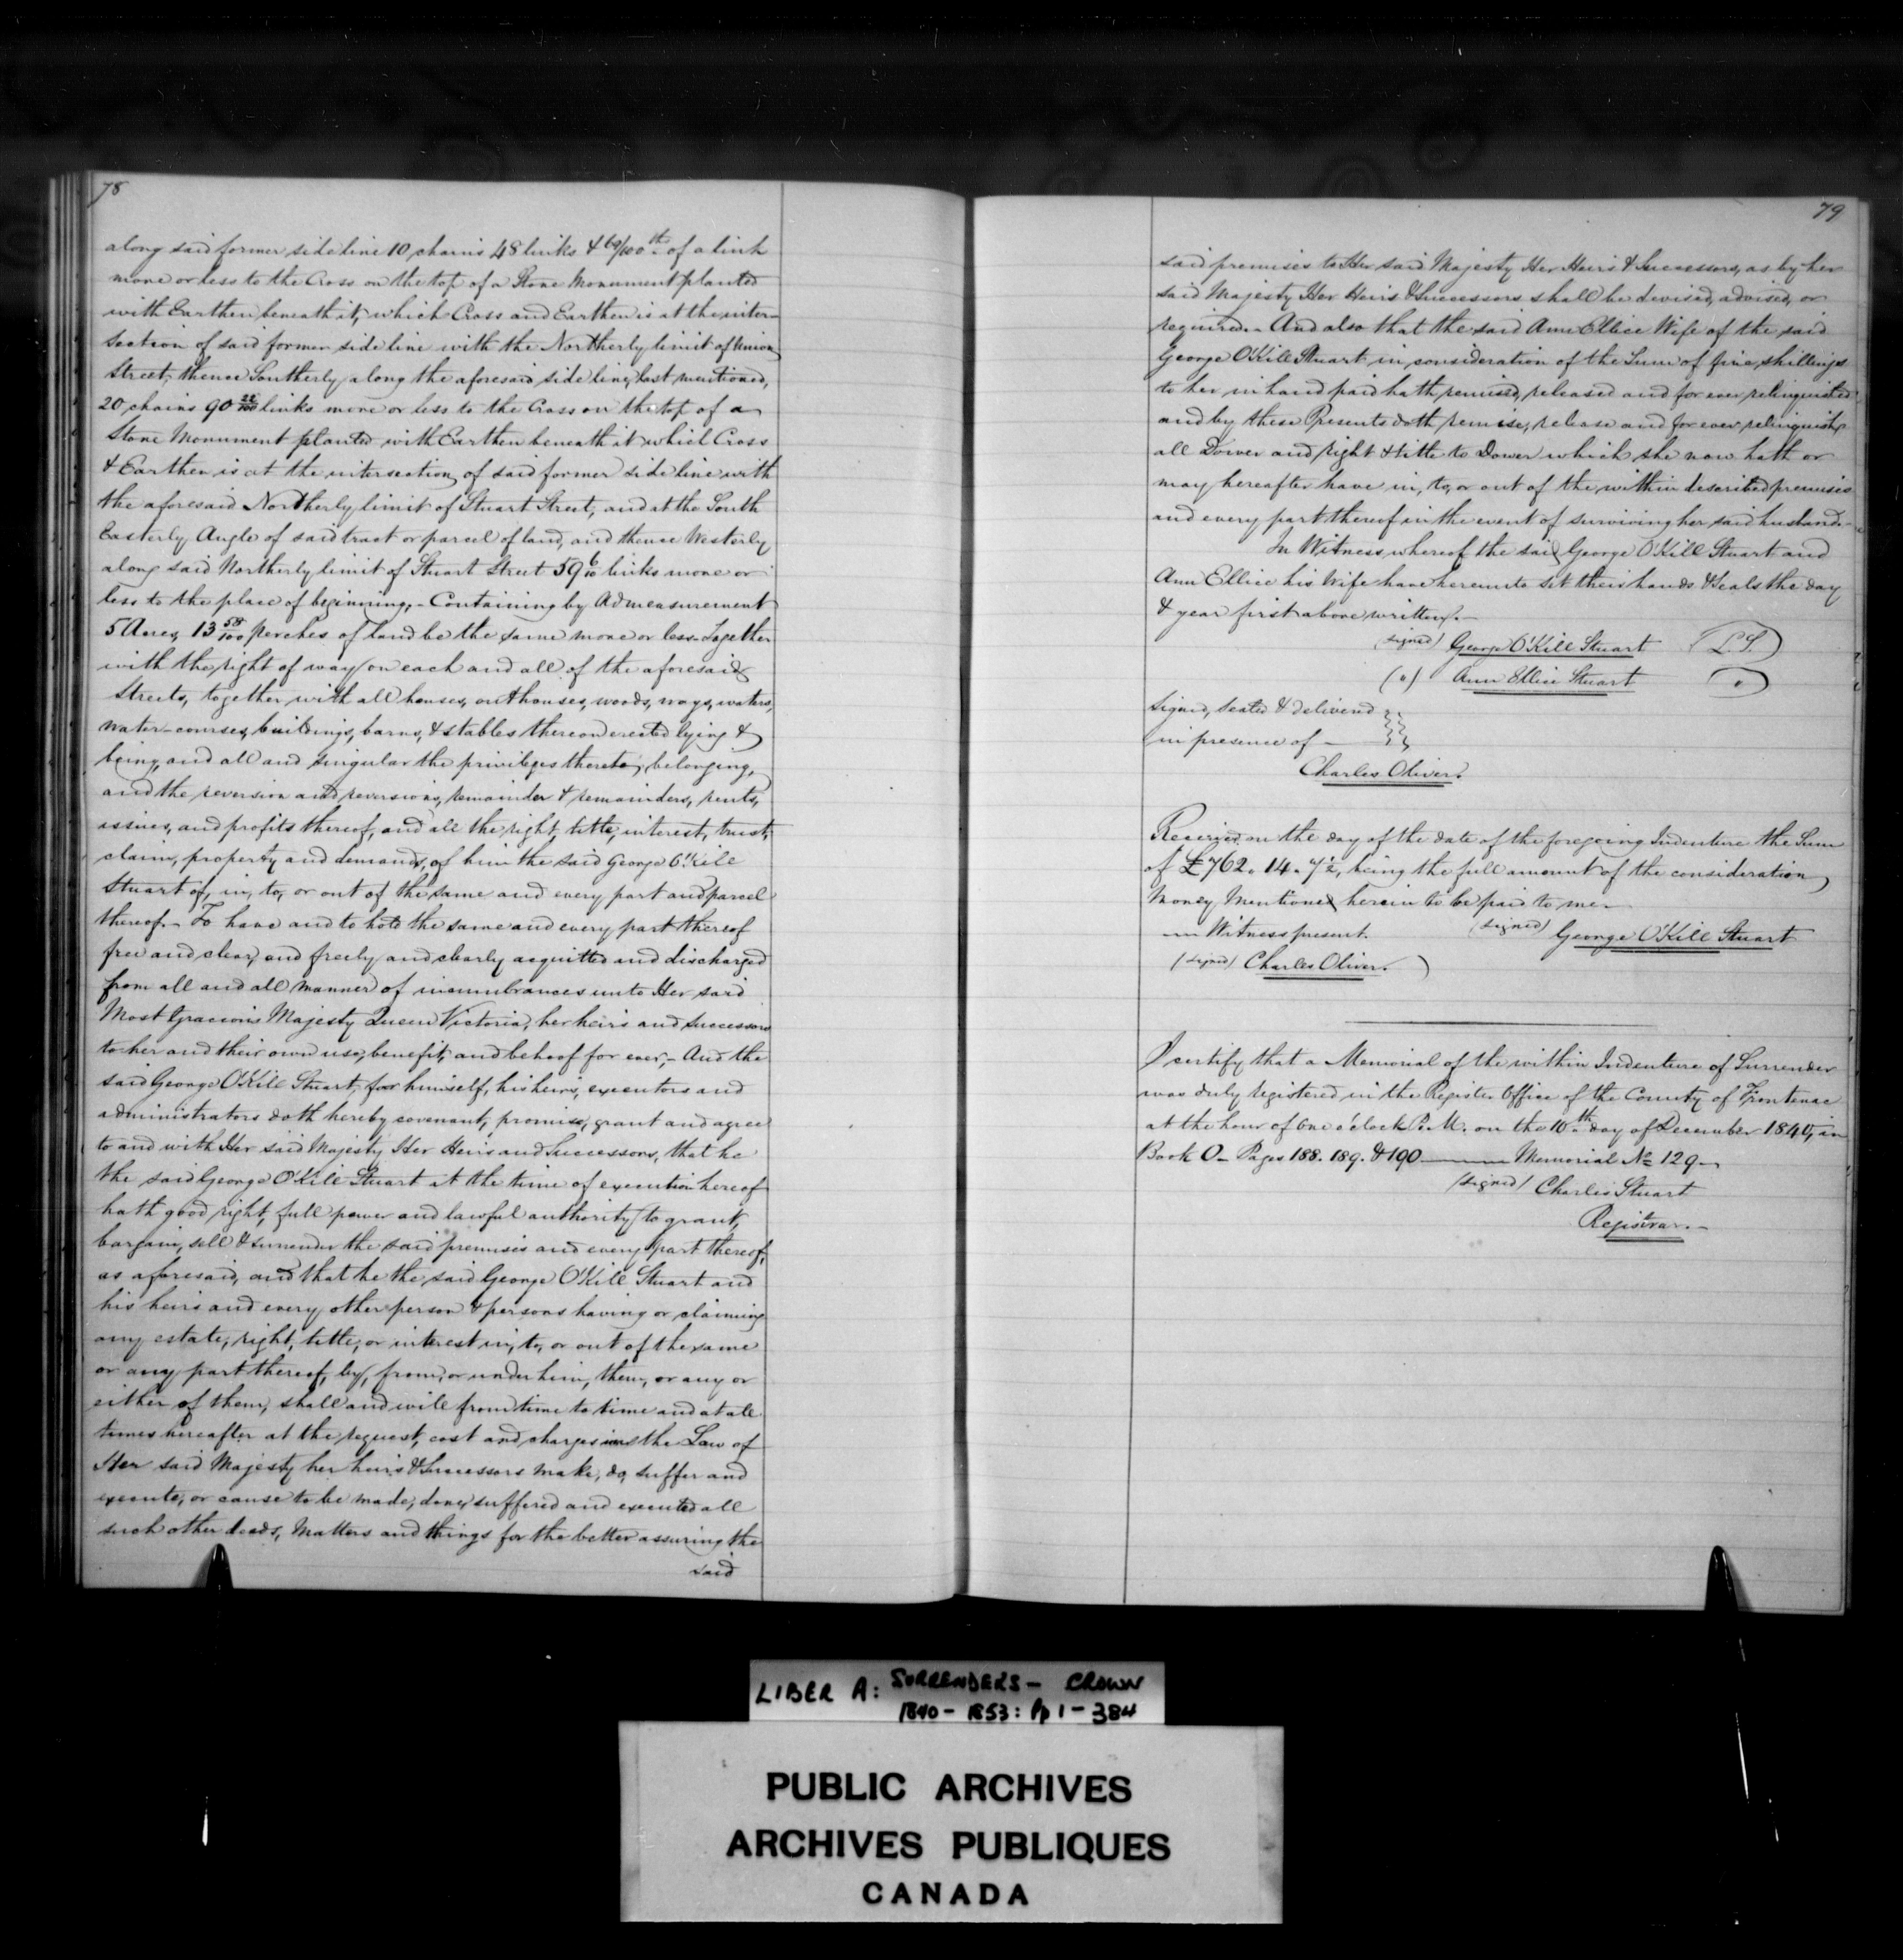 78
along said former side line 10 chains 48 links & 69/100th of a link
more or less to the Cross on the top of a Stone Monument planted
with Earthen beneath it, which Cross and Earthen is at the inter-
section of said former side line with the Northerly limit of Union
Street, thence Southerly along the aforesaid side line, last mentioned,
20 chains 90 22/100 links more or less to the Cross on the top of a
Stone Monument planted with Earthen beneath it which Cross
& Earthen is at the intersection of said former side line with
the aforesaid Northerly limit of Stuart Street, and at the South
Easterly Angle of said tract or parcel of land, and thence Westerly
along said Northerly limit of Stuart Street 59 6/10 links more or
less to the place of beginning, - Containing by Admeasurement
5 Acres, 13 58/100 perches of land be the same more or less. Together
with the right of way on each and all of the aforesaid
Streets, together with all houses, outhouses, woods, ways, waters,
water-courses, buildings, barns, & stables thereon erected lying &
being, and all and singular the privileges thereto, belonging,
and the reversion and reversions, remainder & remainders, rents,
issues, and profits thereof, and all the right, title, interest, trust,
claim, property and demand, of him the said George O'Kill
Stuart of, in, to, or out of the same and every part and parcel
thereof. - To have and to hold the same and every part thereof
free and clear, and freely and clearly acquitted and discharged
from all and all manner of incumbrances unto Her said
Most Gracious Majesty Queen Victoria, her heirs and Successors
to her and their own use, benefit, and behoof for ever, - And the
said George O'Kill Stuart, for himself, his heirs, executors and
administrators doth hereby covenant, promise, grant and agree
to and with Her said Majesty Her Heirs and Successors, that he
the said George O'Kill Stuart at the time of execution hereof
hath good right, full power and lawful authority to grant,
bargain, sell & surrender the said premises and every part thereof,
as aforesaid, and that he the said George O'Kill Stuart and
his heirs and every other person & persons having or claiming
any estate, right, title, or interest in, to, or out of the same
or any part thereof, by, from, or under him, them, or any or
either of them, shall and will from time to time and at all
times hereafter at the request, cost and charges in the Law of
Her said Majesty her heirs & Successors make, do, suffer and
execute, or cause to be made, done, suffered and executed all
such other deeds, Matters and things for the better assuring the
said
79
said premises to Her said Majesty Her Heirs & Successors, as by her
said Majesty Her Heirs & Successors shall be devised, advised, or
required. - And also that the said Ann Ellice Wife of the said
George O'Kill Stuart, in consideration of the Sum of five shillings
to her in hand paid hath remised, released and for ever relinquished
and by these Presents doth remise, release and for ever relinquish
all Dower and right & title to Dower which she now hath or
may hereafter have in, to, or out of the within described premises
and every part thereof in the event of surviving her said husband.-
In Witness whereof the said George O'Kill Stuart and
Ann Ellice his Wife have hereunto set their hands & Seals the day
& year first above written. -
(signed) George O'Kill Stuart (L.S.)
(") Ann Ellice Stuart (")
Signed, Sealed & delivered
in presence of -
Charles Oliver.
Received on the day of the date of the foregoing Indenture the Sum
of £762. 14. 7½, being the full amount of the consideration
Money Mentioned herein to be paid to me -
Witness present. (signed) George O'Kill Stuart
(signed) Charles Oliver.
I certify that a Memorial of the within Indenture of Surrender
was duly registered in the Register Office of the County of Frontenac
at the hour of One o'clock P.M. on the 10th day of December 1840, in
Book O - Pages 188. 189. & 190 — Memorial No 129 -
(signed) Charles Stuart
Registrar. -
LIBER A: SURRENDERS - CROWN
1840 - 1853: Pp 1 - 384
PUBLIC ARCHIVES
ARCHIVES PUBLIQUES
CANADA